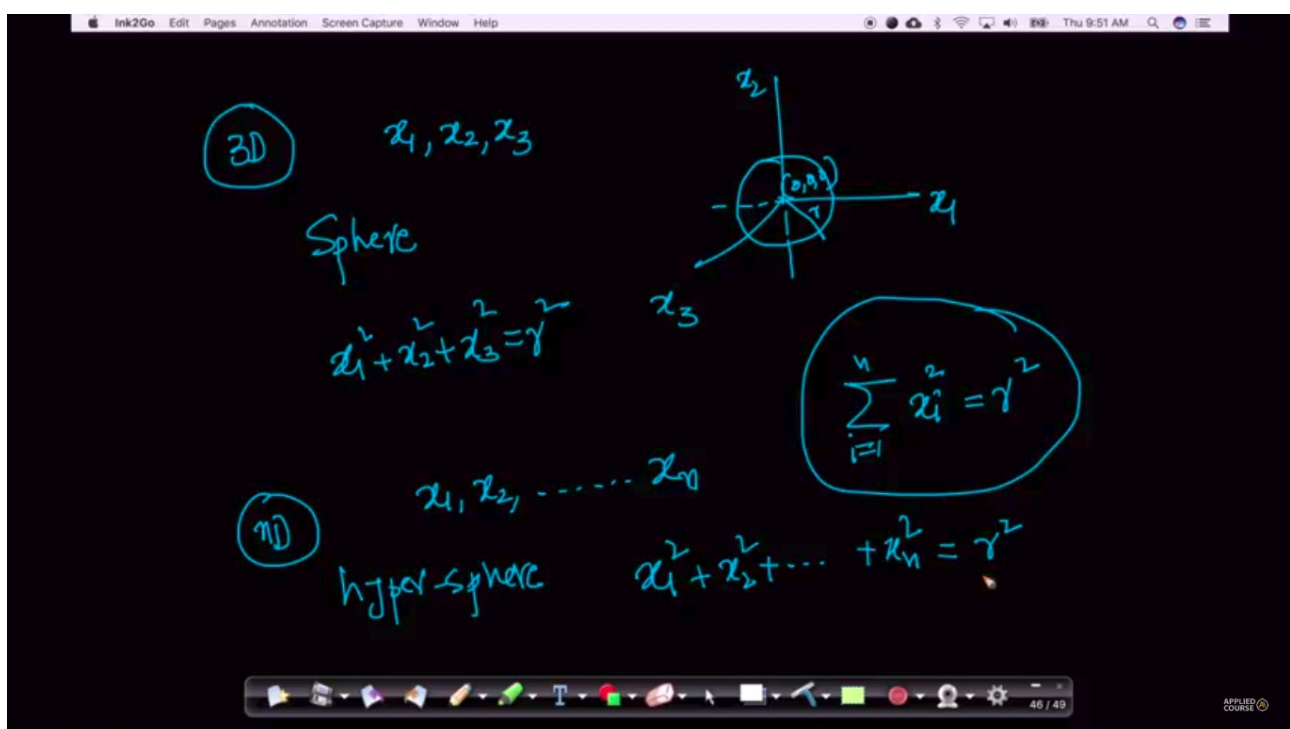 Ink2Go Edit Pages Annotation Screen Capture Window Help Thu 9:51 AM
3D x₁, x₂, x₃
x₂
(0,0,0)
r
x₁
x₃
Sphere
x₁² + x₂² + x₃² = r²
n
∑ xᵢ² = r²
i=1
nD x₁, x₂, ....... xₙ
hyper-sphere x₁² + x₂² + ... + xₙ² = r²
T
46 / 49
APPLIED
COURSE